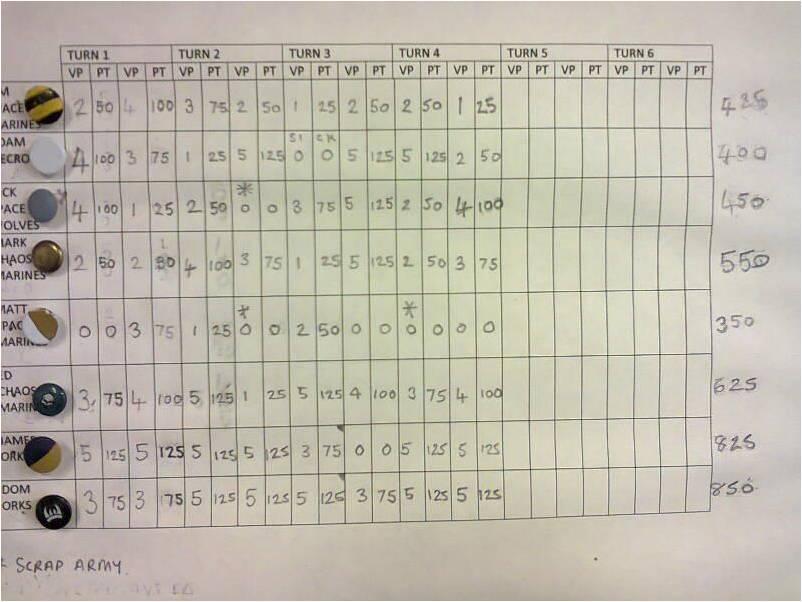 TURN 1 TURN 2 TURN 3 TURN 4 TURN 5 TURN 6
VP PT VP PT VP PT VP PT VP PT VP PT VP PT VP PT VP PT VP PT VP PT VP PT
M
ACE
ARINES
2 50 4 100 3 75 2 50 1 25 2 50 2 50 1 25 425
DAM
ECRO
4 100 3 75 1 25 5 125 0 0 5 125 5 125 2 50 400
CK
PACE
OLVES
*
4 100 1 25 2 50 0 0 3 75 5 125 2 50 4 100 450
MARK
HAOS
MARINES
2 50 2 50 4 100 3 75 1 25 5 125 2 50 3 75 550
MATT
PAC
MARINES
* *
0 0 3 75 1 25 0 0 2 50 0 0 0 0 0 0 350
ED
CHAOS
MARIN
3 75 4 100 5 125 1 25 5 125 4 100 3 75 4 100 625
JAMES
ORK
5 125 5 125 5 125 5 125 3 75 0 0 5 125 5 125 825
DOM
ORKS
3 75 3 75 5 125 5 125 5 125 3 75 5 125 5 125 850
* SCRAP ARMY